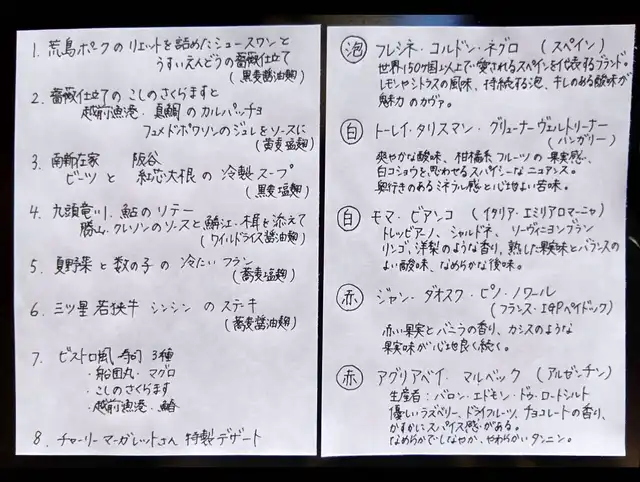 1. 荒島ポークのリエットを詰めたシュースワンと
うすいえんどうの薔薇仕立て
(黒麦醤油麹)
2. 薔薇仕立ての こしのさくらますと
越前漁港・真鯛のカルパッチョ
フュメドポワソンのジュレをソースに
(蕎麦塩麹)
3. 南新在家 阪谷
ビーツと 紅芯大根の 冷製スープ
(黒麦塩麹)
4. 九頭竜川 鮎のソテー
勝山・クレソンのソースと鯖江・椎茸を添えて
(ワイルドライス醤油麹)
5. 夏野菜と数の子の 冷たいフラン
(蕎麦塩麹)
6. 三ツ星 若狭牛 シンシン のステーキ
(蕎麦醤油麹)
7. ビストロ風 寿司 3種
・船団丸・マグロ
・こしのさくらます
・越前漁港・鰆
8. チャーリーマーガレットさん 特製デザート
泡 フレシネ・コルドン・ネグロ (スペイン)
世界150ヶ国以上で愛されるスペインを代表するブランド。
レモンやシトラスの風味、持続する泡、キレのある酸味が
魅力のカヴァ。
白 トーレイ・タリスマン・グリューナーヴェルトリーナー
(ハンガリー)
爽やかな酸味、柑橘系フルーツの果実感、
白コショウを思わせるスパイシーなニュアンス。
奥行きのあるミネラル感と心地よい苦味。
白 モマ・ビアンコ (イタリア・エミリアロマーニャ)
トレッビアーノ、シャルドネ、ソーヴィニヨンブラン
リンゴ、洋梨のような香り、熟した果実味とバランスの
よい酸味、なめらかな後味。
赤 ジャン・ダオスク・ピノ・ノワール
(フランス・IGPペイドック)
赤い果実とバニラの香り、カシスのような
果実味が心地良く続く。
赤 アグリアベイ・マルベック (アルゼンチン)
生産者:バロン・エドモン・ドゥ・ロートシルト
優しいラズベリー、ドライフルーツ、チョコレートの香り、
かすかにスパイス感がある。
なめらかでしなやか、やわらかいタンニン。